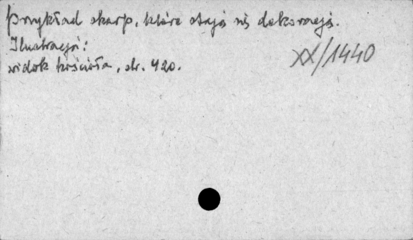 przykład skarp, które stają się dekoracją.
Ilustracja:
widok kościoła, str. 420.
XX/1440